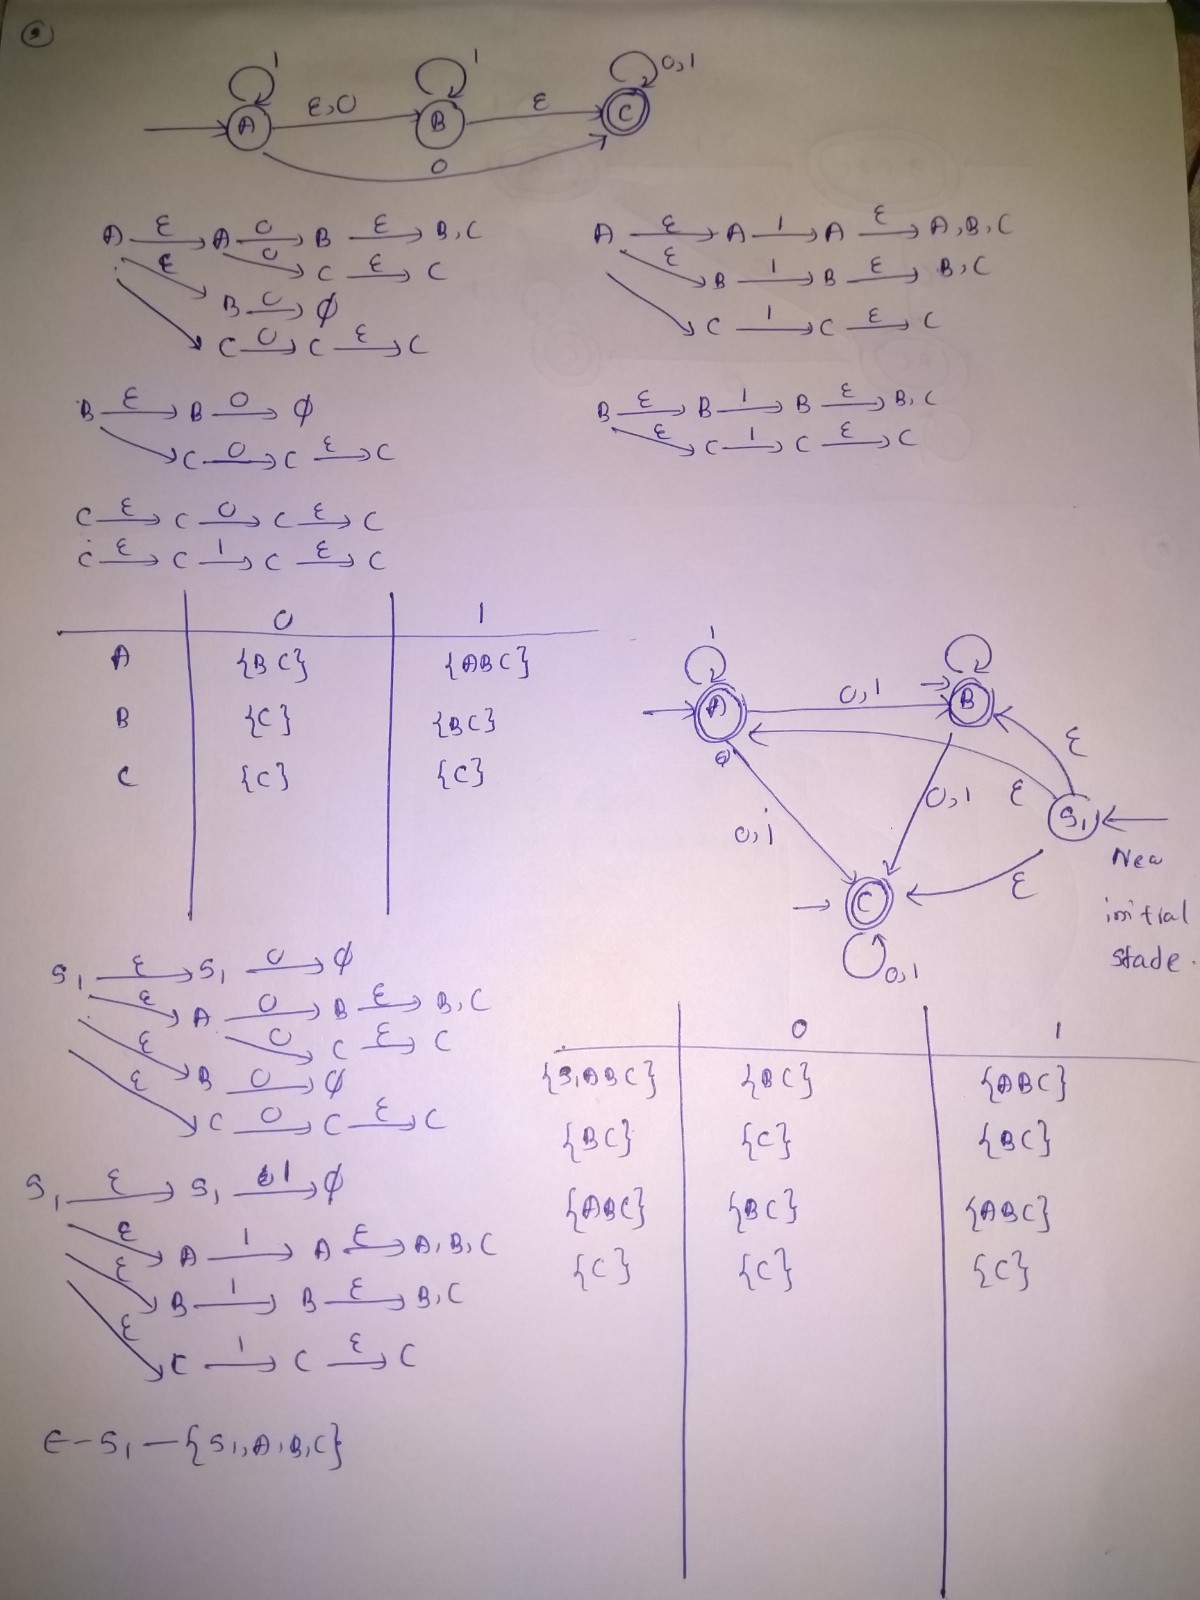 1 1 0,1
A ε,0 B ε C
0
A ε A 0 B ε B,C
0 C ε C
ε B 0 ϕ
C 0 C ε C
A ε A 1 A ε A,B,C
ε B 1 B ε B,C
C 1 C ε C
B ε B 0 ϕ
C 0 C ε C
B ε B 1 B ε B,C
ε C 1 C ε C
C ε C 0 C ε C
C ε C 1 C ε C
0 1
A {BC} {ABC}
B {C} {BC}
C {C} {C}
1
A 0,1 B
ε
0,1 ε S1
0,1
New
C ε
initial
stade.
0,1
S1 ε S1 0 ϕ
ε A 0 B ε B,C
0 C ε C
ε B 0 ϕ
ε C 0 C ε C
S1 ε S1 1 ϕ
ε A 1 A ε A,B,C
ε B 1 B ε B,C
ε C 1 C ε C
ε-S1-{S1,A,B,C}
0 1
{S1ABC} {BC} {ABC}
{BC} {C} {BC}
{ABC} {BC} {ABC}
{C} {C} {C}